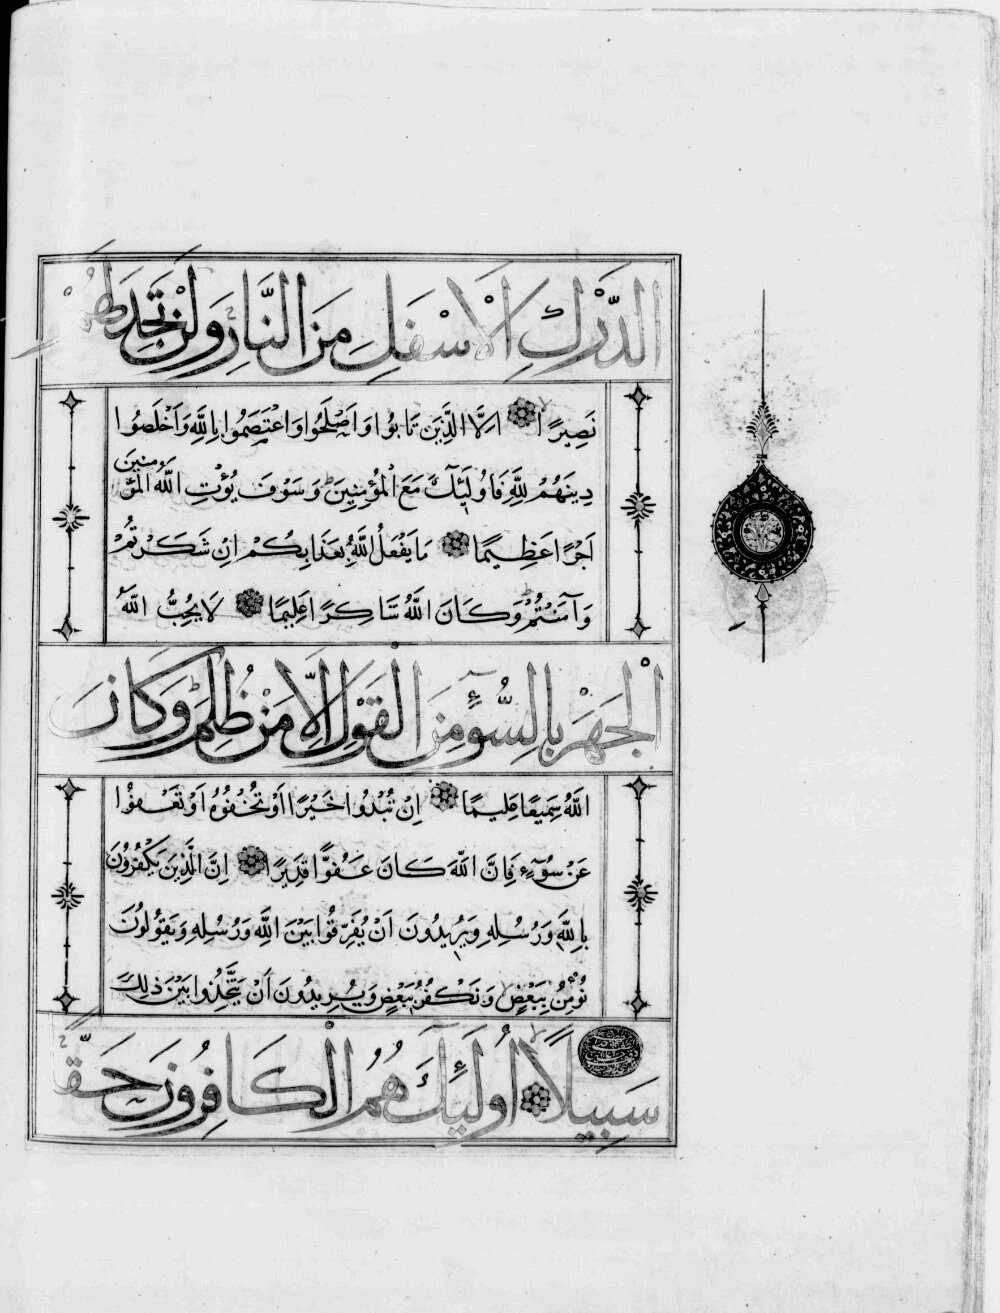 الدَّرْكِ الْاَسْفَلِ مِنَ النَّارِ وَلَنْ تَجِدَ لَهُمْ
نَصِيرًا اِلَّا الَّذِينَ تَابُوا وَاَصْلَحُوا وَاعْتَصَمُوا بِاللَّهِ وَاَخْلَصُوا
دِينَهُمْ لِلَّهِ فَاُولَئِكَ مَعَ الْمُؤْمِنِينَ وَسَوْفَ يُؤْتِ اللَّهُ الْمُؤْمِنِينَ
اَجْرًا عَظِيمًا مَا يَفْعَلُ اللَّهُ بِعَذَابِكُمْ اِنْ شَكَرْتُمْ
وَآمَنْتُمْ وَكَانَ اللَّهُ شَاكِرًا عَلِيمًا لَا يُحِبُّ اللَّهُ
الْجَهْرَ بِالسُّوٓءِ مِنَ الْقَوْلِ اِلَّا مَنْ ظُلِمَ وَكَانَ
اللَّهُ سَمِيعًا عَلِيمًا اِنْ تُبْدُوا خَيْرًا اَوْ تُخْفُوهُ اَوْ تَعْفُوا
عَنْ سُوٓءٍ فَاِنَّ اللَّهَ كَانَ عَفُوًّا قَدِيرًا اِنَّ الَّذِينَ يَكْفُرُونَ
بِاللَّهِ وَرُسُلِهِ وَيُرِيدُونَ اَنْ يُفَرِّقُوا بَيْنَ اللَّهِ وَرُسُلِهِ وَيَقُولُونَ
نُؤْمِنُ بِبَعْضٍ وَنَكْفُرُ بِبَعْضٍ وَيُرِيدُونَ اَنْ يَتَّخِذُوا بَيْنَ ذَلِكَ
سَبِيلًا اُولَئِكَ هُمُ الْكَافِرُونَ حَقًّا